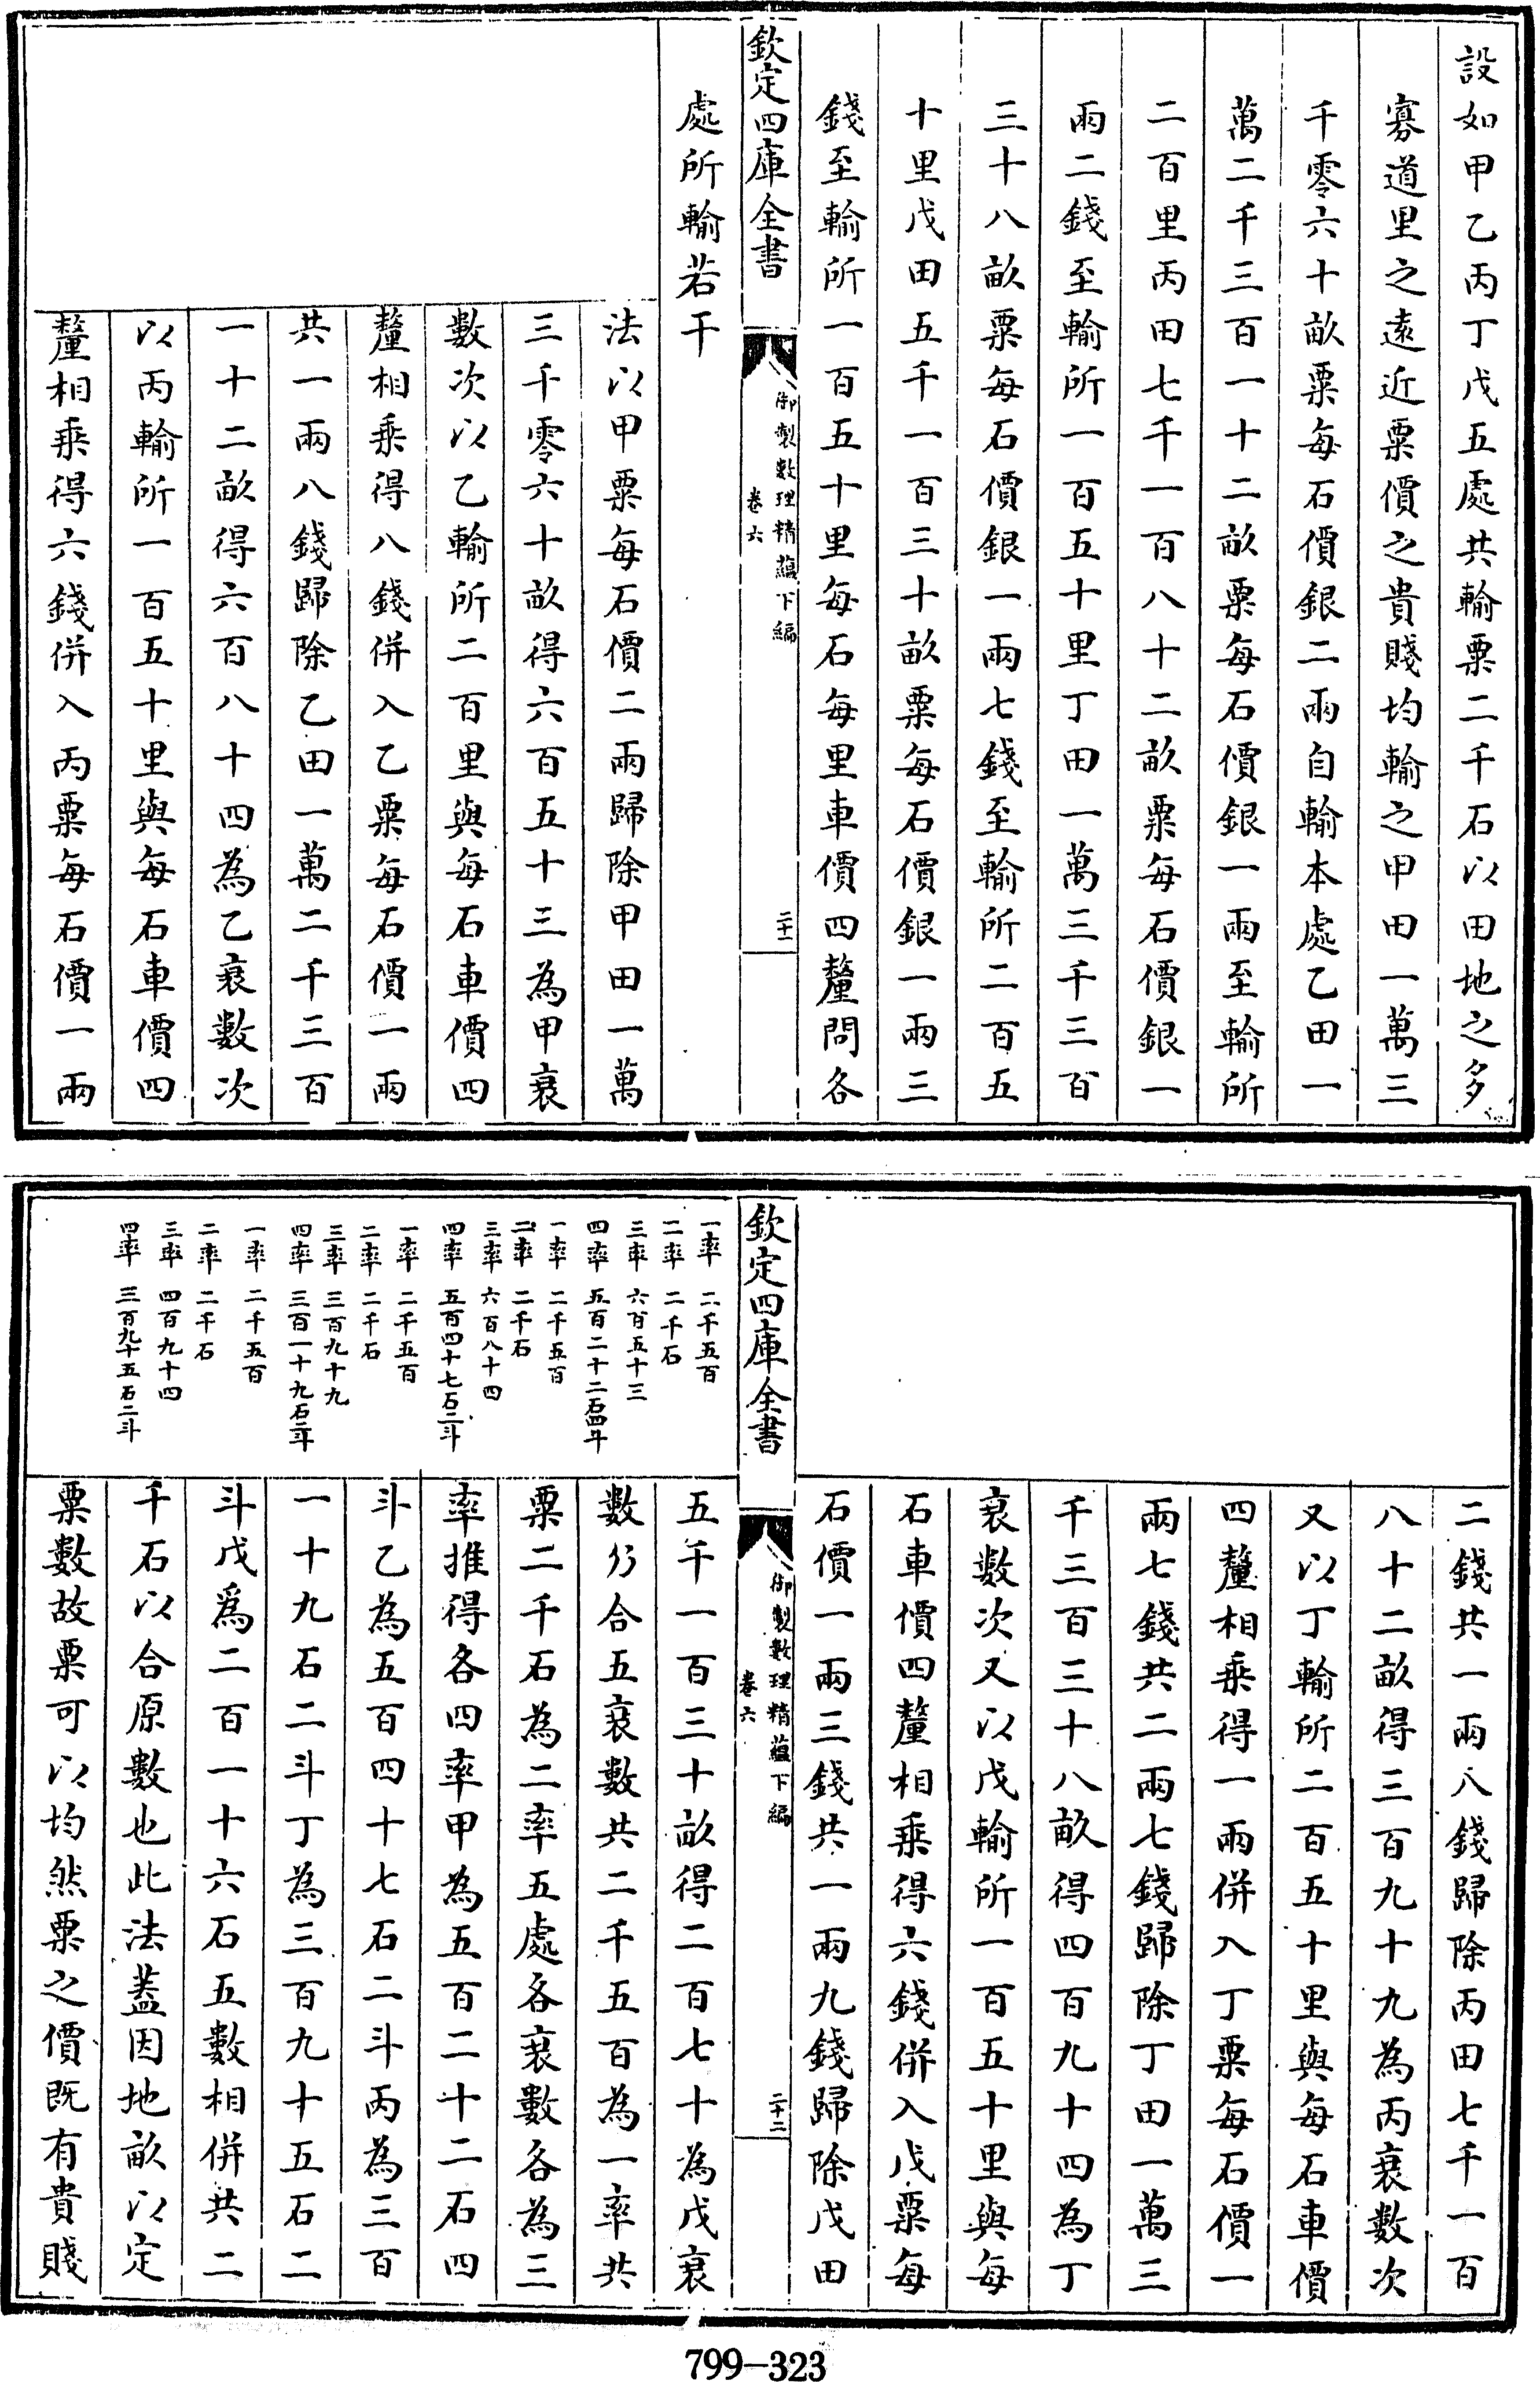 設如甲乙丙丁戊五處共輸粟二千石以田地之多
寡道里之遠近粟價之貴賤均輸之甲田一萬三
千零六十畝粟每石價銀二兩自輸本處乙田一
萬二千三百一十二畝粟每石價銀一兩至輸所
二百里丙田七千一百八十二畝粟每石價銀一
兩二錢至輸所一百五十里丁田一萬三千三百
三十八畝粟每石價銀一兩七錢至輸所二百五
十里戊田五千一百三十畝粟每石價銀一兩三
錢至輸所一百五十里每石每里車價四釐問各
欽定四庫全書
御製數理精蘊下編
卷六
二十一
處所輸若干
法以甲粟每石價二兩歸除甲田一萬
三千零六十畝得六百五十三為甲衰
數次以乙輸所二百里與每石車價四
釐相乘得八錢併入乙粟每石價一兩
共一兩八錢歸除乙田一萬二千三百
一十二畝得六百八十四為乙衰數次
以丙輸所一百五十里與每石車價四
釐相乘得六錢併入丙粟每石價一兩
二錢共一兩八錢歸除丙田七千一百
八十二畝得三百九十九為丙衰數次
又以丁輸所二百五十里與每石車價
四釐相乘得一兩併入丁粟每石價一
兩七錢共二兩七錢歸除丁田一萬三
千三百三十八畝得四百九十四為丁
衰數次又以戊輸所一百五十里與每
石車價四釐相乘得六錢併入戊粟每
石價一兩三錢共一兩九錢歸除戊田
欽定四庫全書
御製數理精蘊下編
卷六
二十二
一率 二千五百
二率 二千石
三率 六百五十三
四率 五百二十二石四斗
一率 二千五百
二率 二千石
三率 六百八十四
四率 五百四十七石二斗
一率 二千五百
二率 二千石
三率 三百九十九
四率 三百一十九石二斗
一率 二千五百
二率 二千石
三率 四百九十四
四率 三百九十五石二斗
五千一百三十畝得二百七十為戊衰
數乃合五衰數共二千五百為一率共
粟二千石為二率五處各衰數各為三
率推得各四率甲為五百二十二石四
斗乙為五百四十七石二斗丙為三百
一十九石二斗丁為三百九十五石二
斗戊爲二百一十六石五數相併共二
千石以合原數也此法蓋因地畝以定
粟數故粟可以均然粟之價既有貴賤
799-323